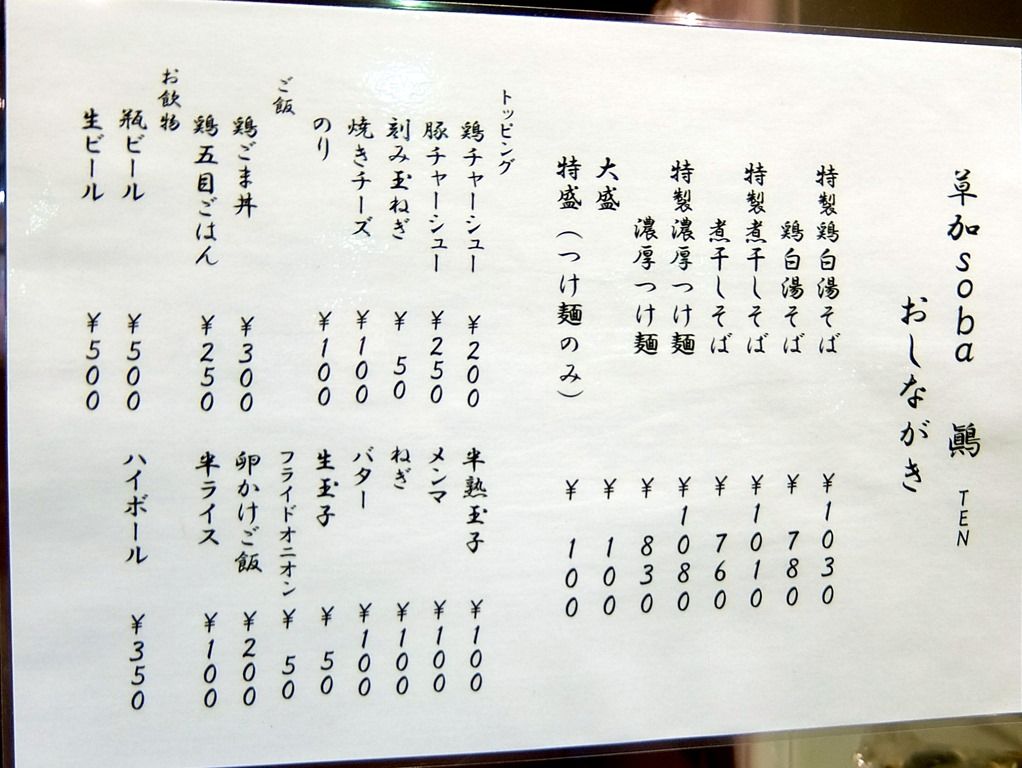 草加soba 鷏 TEN
おしながき
特製鶏白湯そば ¥1030
鶏白湯そば ¥780
特製煮干しそば ¥1010
煮干しそば ¥760
特製濃厚つけ麺 ¥1080
濃厚つけ麺 ¥830
大盛 ¥100
特盛(つけ麺のみ) ¥100
トッピング
鶏チャーシュー ¥200
半熟玉子 ¥100
豚チャーシュー ¥250
メンマ ¥100
刻み玉ねぎ ¥50
ねぎ ¥100
焼きチーズ ¥100
バター ¥100
のり ¥100
生玉子 ¥50
フライドオニオン ¥50
ご飯
鶏ごま丼 ¥300
卵かけご飯 ¥200
鶏五目ごはん ¥250
半ライス ¥100
お飲物
瓶ビール ¥500
ハイボール ¥350
生ビール ¥500